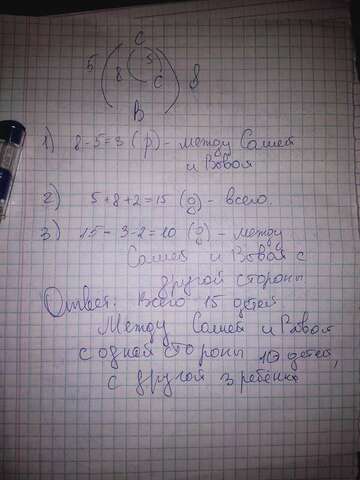 С
5 8 5 С 8
В
1) 8-5=3 (р) - между Сашей
и Вовой
2) 5+8+2=15 (д) - всего.
3) 15-3-2=10 (д) - между
Сашей и Вовой с
другой стороны
Ответ: Всего 15 детей
Между Сашей и Вовой
с одной стороны 10 детей,
с другой 3 ребёнка